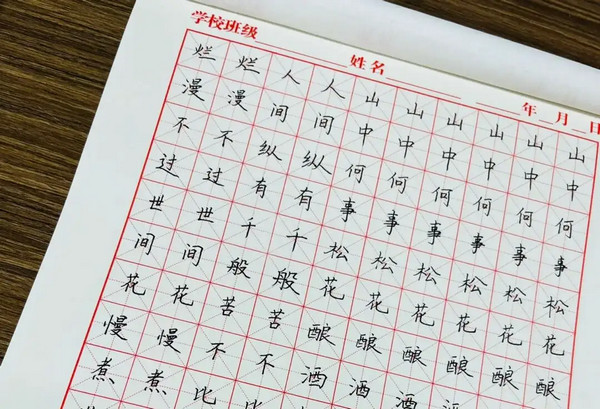 学校班级 姓名 年 月 日
山中何事松花酿
山中何事松花酿
山中何事松花酿
山中何事松花酿酒
山中何事松花酿酒
山中何事松花酿酒
人间纵有千般苦不比
人间纵有千般苦不比
烂漫不过世间花慢煮
烂漫不过世间花慢煮